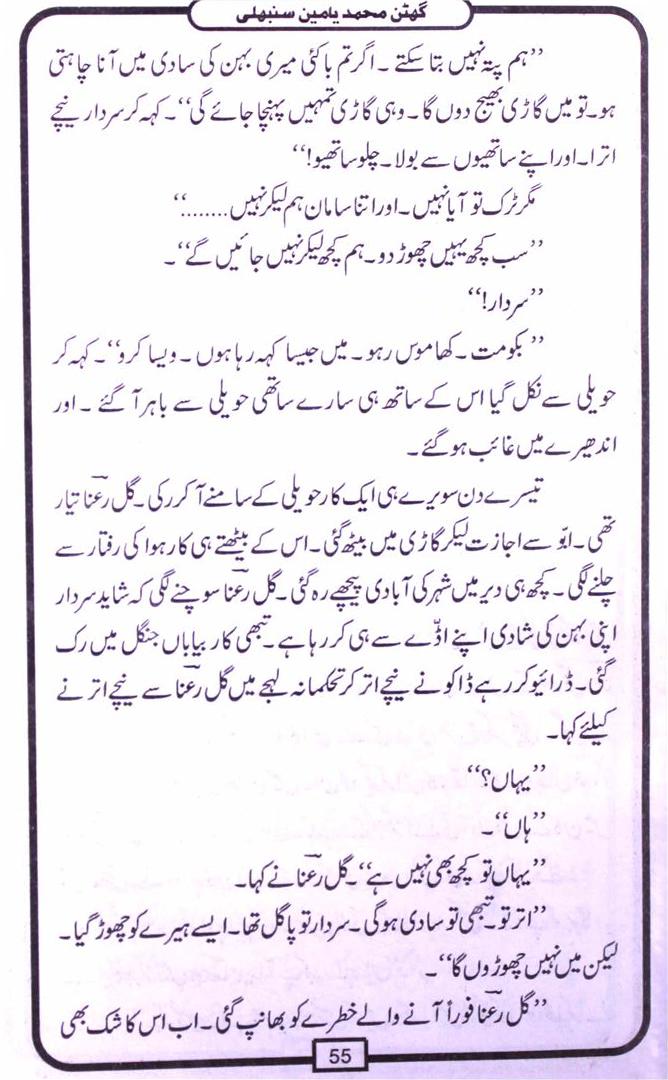 گھٹن محمد یامین سنبھلی
’’ہم پتہ نہیں بتا سکتے ۔ اگر تم باکئی میری بہن کی سادی میں آنا چاہتی
ہو۔تو میں گاڑی بھیج دوں گا ۔ وہی گاڑی تمہیں پہنچا جائے گی‘‘۔ کہہ کر سردار نیچے
اترا۔اور اپنے ساتھیوں سے بولا۔ چلو ساتھیو!‘‘
مگر ٹرک تو آیا نہیں ۔ اور اتنا سامان ہم لیکر نہیں ........‘‘
’’سب کچھ یہیں چھوڑ دو۔ ہم کچھ لیکر نہیں جائیں گے‘‘۔
’’سردار!‘‘
’’ بکومت ۔ کھاموس رہو ۔ میں جیسا کہہ رہا ہوں ۔ ویسا کرو‘‘۔ کہہ کر
حویلی سے نکل گیا اس کے ساتھ ہی سارے ساتھی حویلی سے باہر آ گئے ۔ اور
اندھیرے میں غائب ہو گئے ۔
تیسرے دن سویرے ہی ایک کار حویلی کے سامنے آ کر رکی ۔ گل رعنا تیار
تھی ۔ ابّو سے اجازت لیکر گاڑی میں بیٹھ گئی ۔ اس کے بیٹھتے ہی کار ہوا کی رفتار سے
چلنے لگی ۔ کچھ ہی دیر میں شہر کی آبادی پیچھے رہ گئی ۔ گل رعنا سوچنے لگی کہ شاید سردار
اپنی بہن کی شادی اپنے اڈّے سے ہی کر رہا ہے ۔ تبھی کار بیاباں جنگل میں رک
گئی ۔ ڈرائیو کر رہے ڈاکو نے نیچے اتر کر تحکمانہ لہجے میں گل رعنا سے نیچے اتر نے
کیلئے کہا۔
’’یہاں؟‘‘
’’ہاں‘‘۔
’’یہاں تو کچھ بھی نہیں ہے‘‘۔ گل رعنا نے کہا۔
’’اتر تو۔ تبھی تو سادی ہوگی ۔ سردار تو پاگل تھا۔ ایسے ہیرے کو چھوڑ گیا ۔
لیکن میں نہیں چھوڑوں گا‘‘۔
’’گل رعنا فوراً آنے والے خطرے کو بھانپ گئی ۔ اب اس کا شک بھی
55